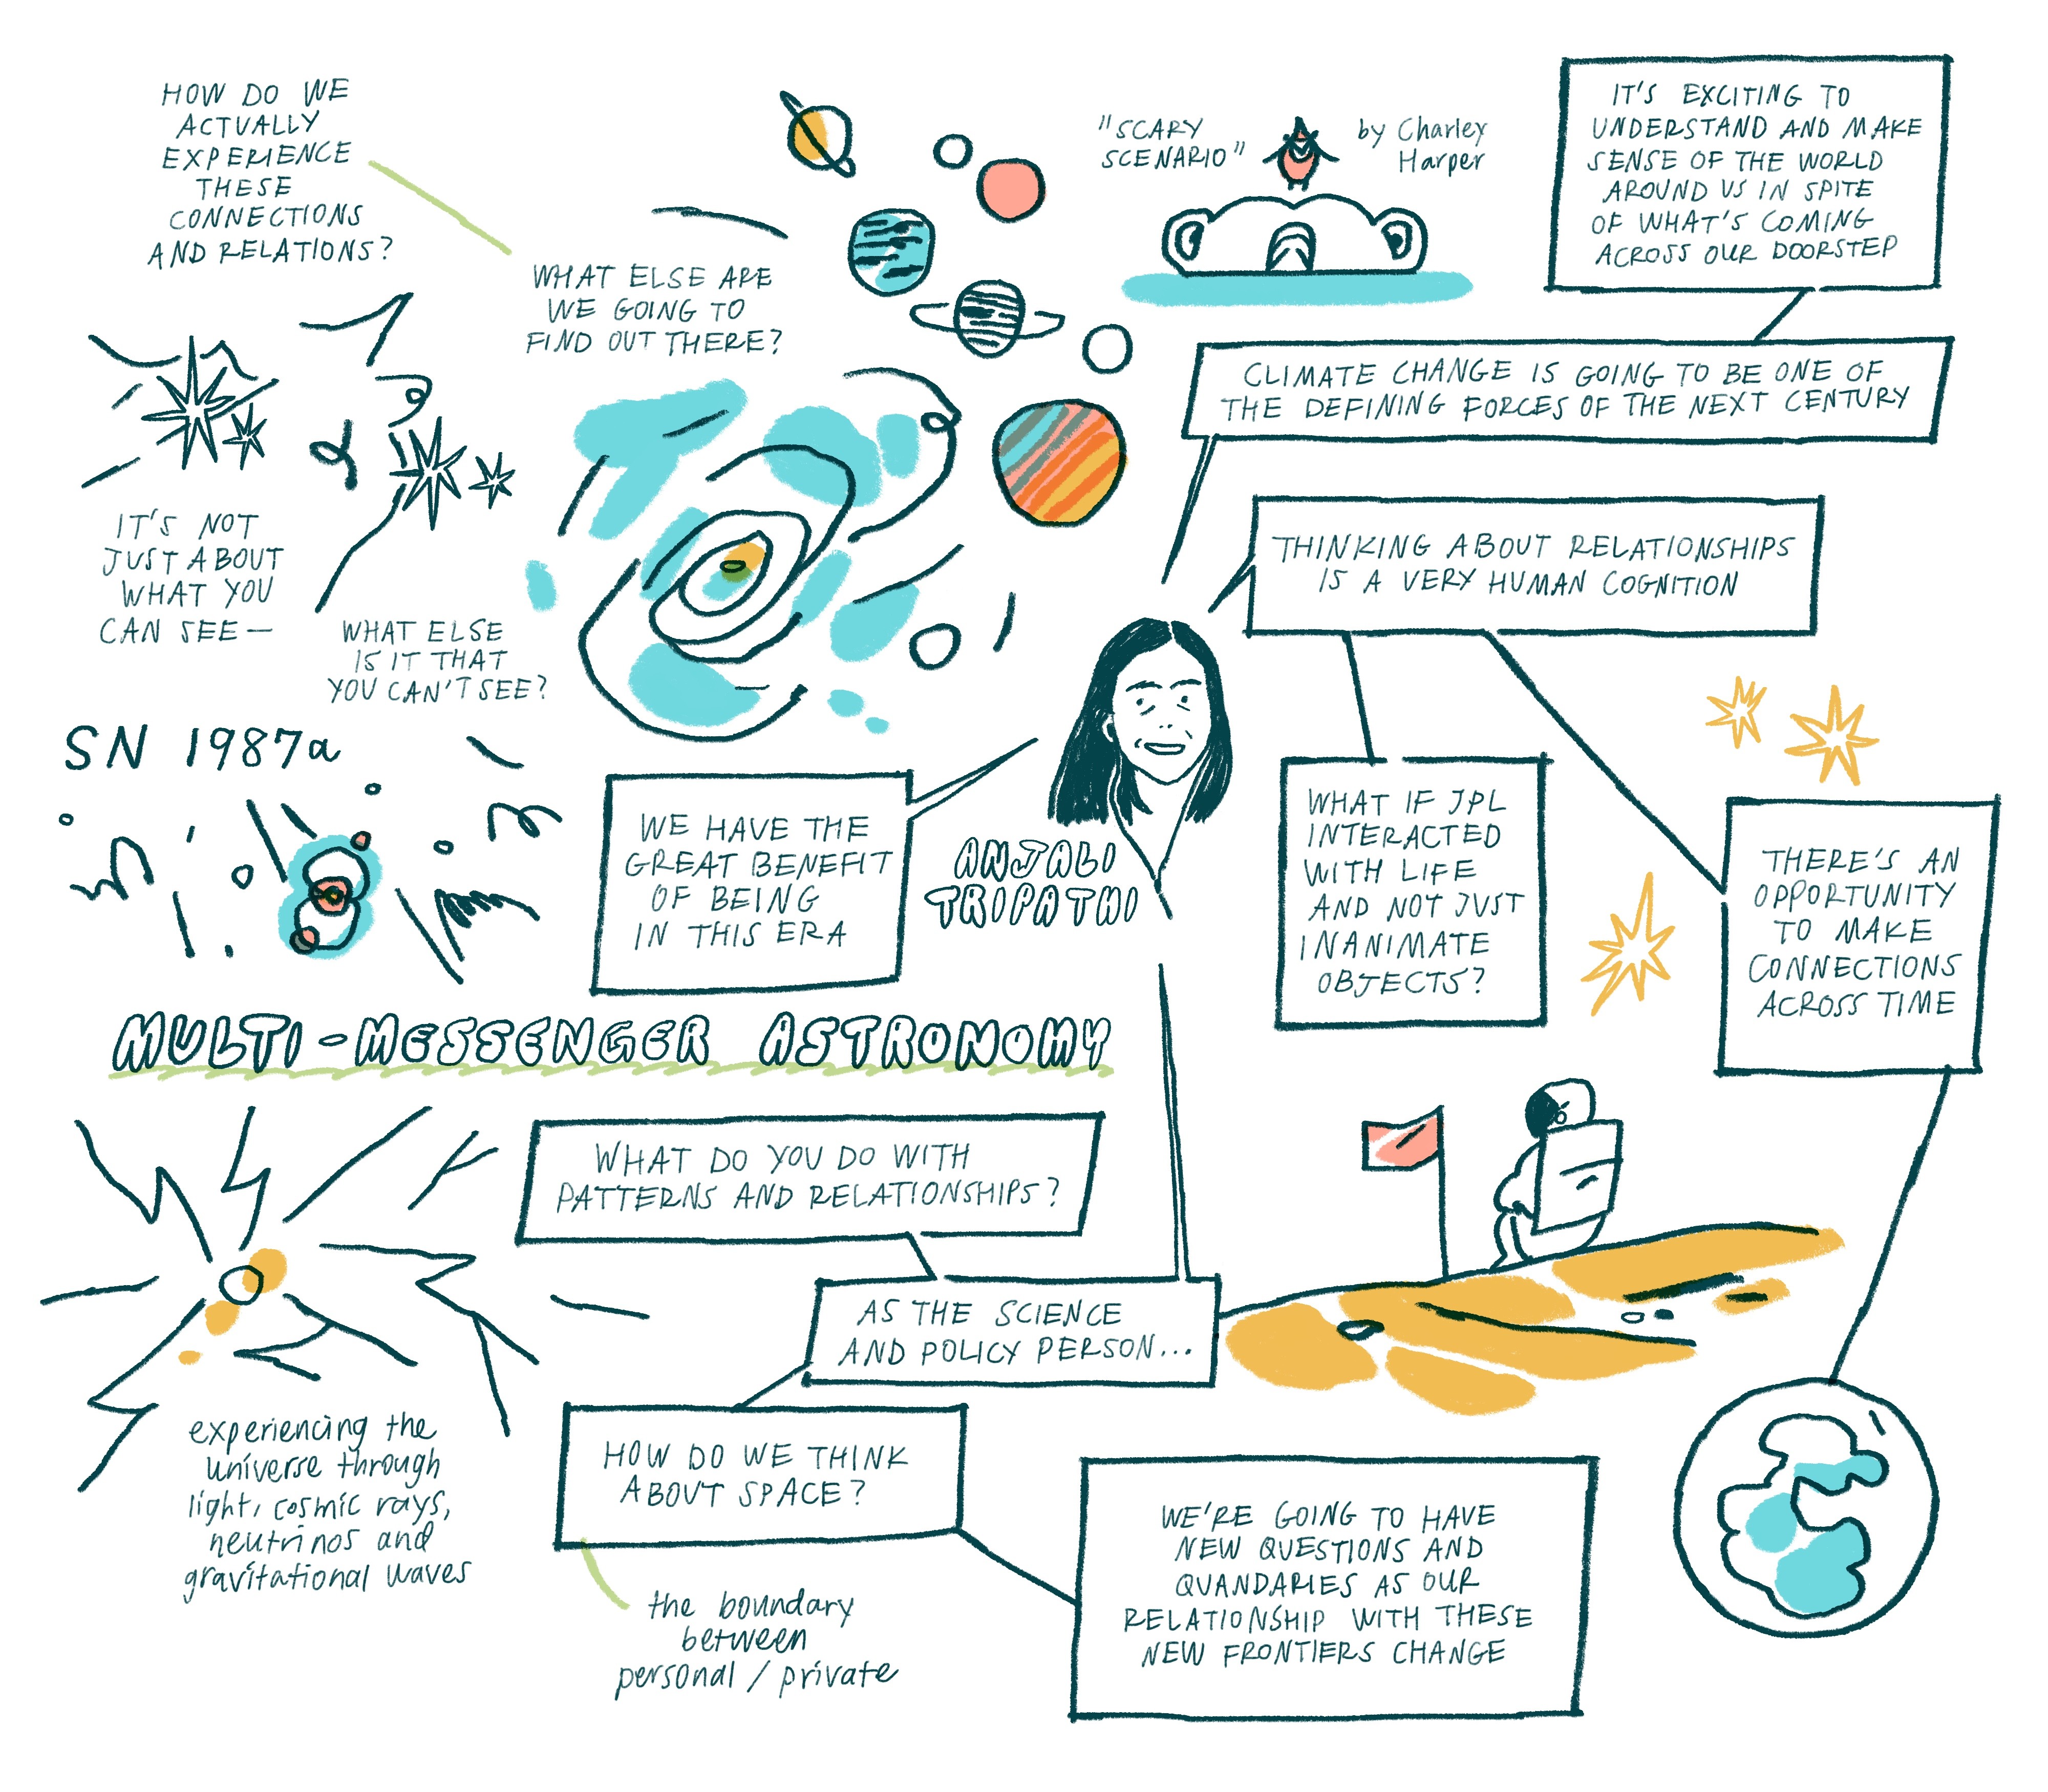 HOW DO WE
ACTUALLY
EXPERIENCE
THESE
CONNECTIONS
AND RELATIONS?
WHAT ELSE ARE
WE GOING TO
FIND OUT THERE?
"SCARY
SCENARIO"
by Charley
Harper
IT'S EXCITING TO
UNDERSTAND AND MAKE
SENSE OF THE WORLD
AROUND US IN SPITE
OF WHAT'S COMING
ACROSS OUR DOORSTEP
CLIMATE CHANGE IS GOING TO BE ONE OF
THE DEFINING FORCES OF THE NEXT CENTURY
THINKING ABOUT RELATIONSHIPS
IS A VERY HUMAN COGNITION
IT'S NOT
JUST ABOUT
WHAT YOU
CAN SEE—
WHAT ELSE
IS IT THAT
YOU CAN'T SEE?
SN 1987a
WE HAVE THE
GREAT BENEFIT
OF BEING
IN THIS ERA
ANJALI
TRIPATHI
WHAT IF JPL
INTERACTED
WITH LIFE
AND NOT JUST
INANIMATE
OBJECTS?
THERE'S AN
OPPORTUNITY
TO MAKE
CONNECTIONS
ACROSS TIME
MULTI-MESSENGER ASTRONOMY
WHAT DO YOU DO WITH
PATTERNS AND RELATIONSHIPS?
AS THE SCIENCE
AND POLICY PERSON...
experiencing the
universe through
light, cosmic rays,
neutrinos and
gravitational waves
HOW DO WE THINK
ABOUT SPACE?
the boundary
between
personal / private
WE'RE GOING TO HAVE
NEW QUESTIONS AND
QUANDARIES AS OUR
RELATIONSHIP WITH THESE
NEW FRONTIERS CHANGE